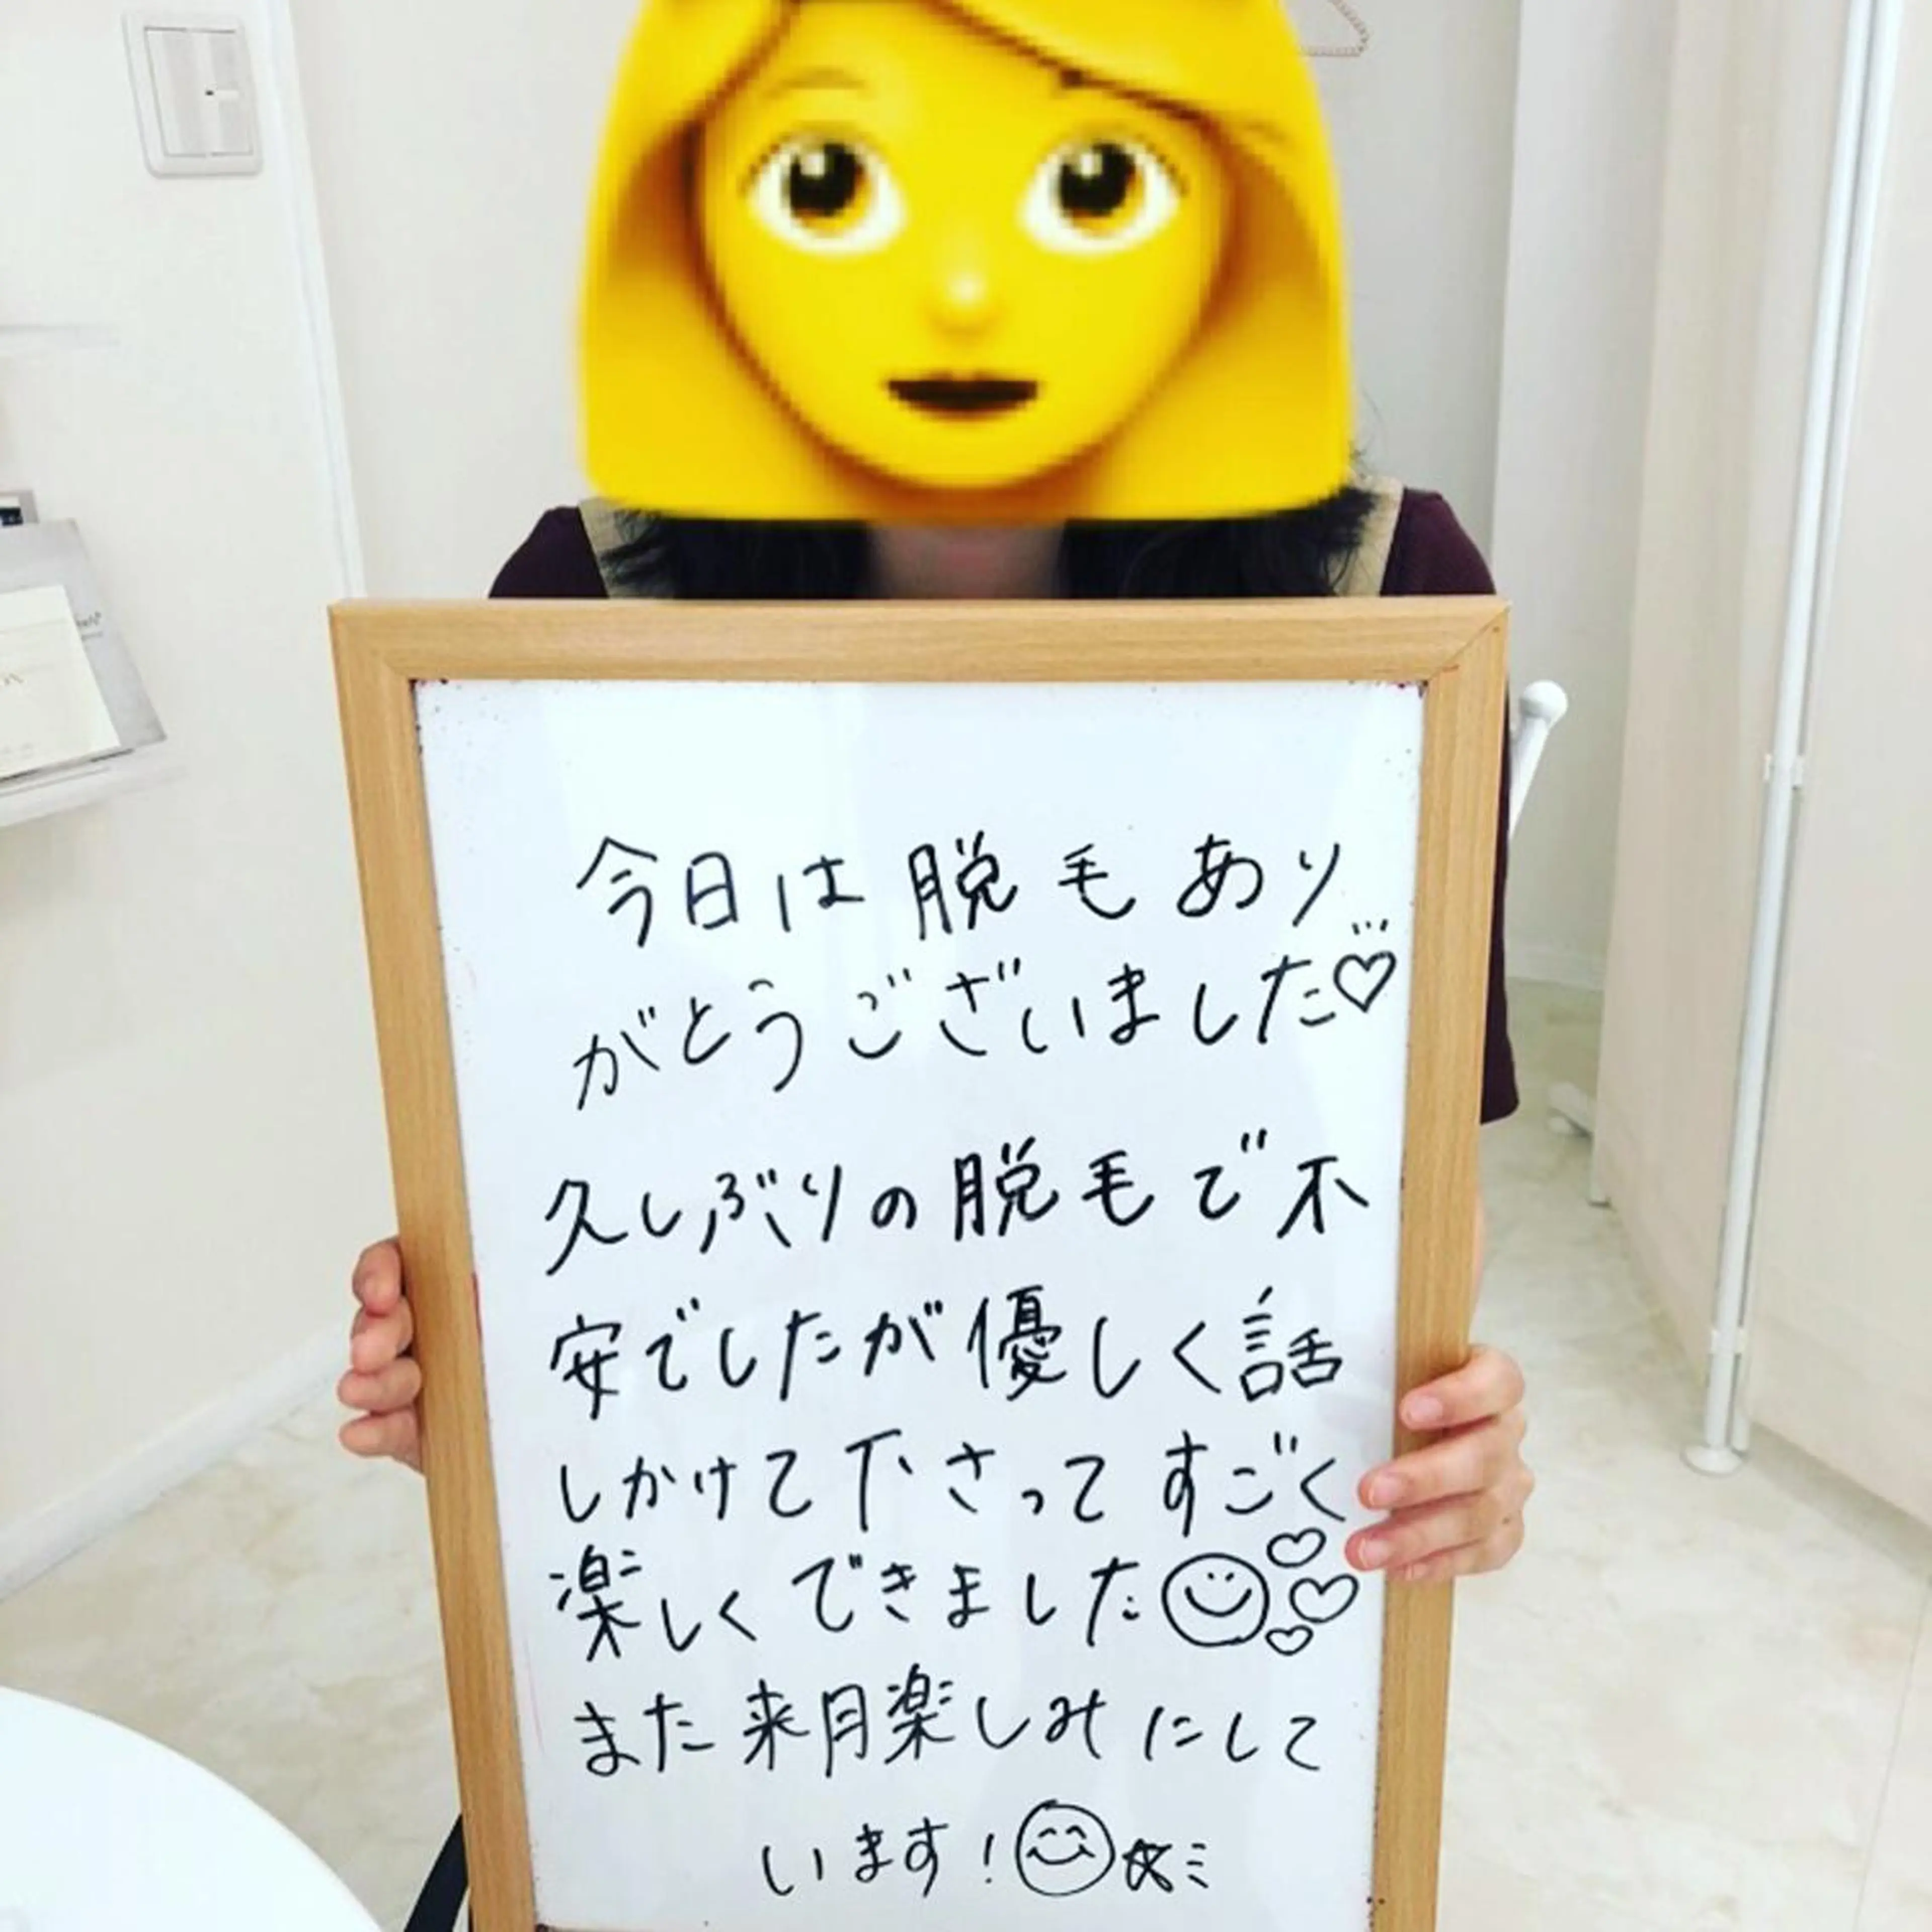 今日は脱毛あり
がとうございました♡
久しぶりの脱毛で不
安でしたが優しく話
しかけて下さってすごく
楽しくできました
また来月楽しみにして
います!